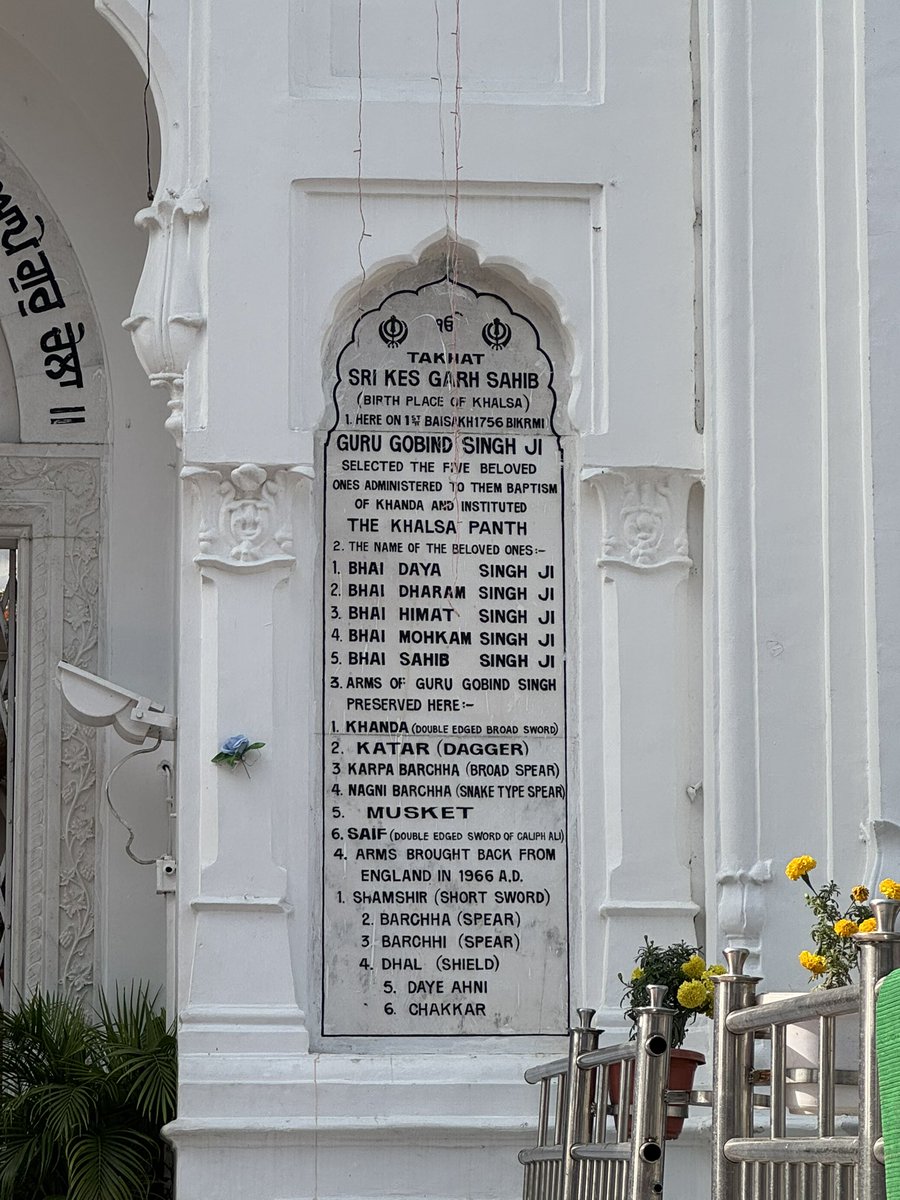 ੴ
TAKHAT
SRI KES GARH SAHIB
(BIRTH PLACE OF KHALSA)
1. HERE ON 1ST BAISAKH 1756 BIKRMI
GURU GOBIND SINGH JI
SELECTED THE FIVE BELOVED
ONES ADMINISTERED TO THEM BAPTISM
OF KHANDA AND INSTITUTED
THE KHALSA PANTH
2. THE NAME OF THE BELOVED ONES:-
1. BHAI DAYA SINGH JI
2. BHAI DHARAM SINGH JI
3. BHAI HIMAT SINGH JI
4. BHAI MOHKAM SINGH JI
5. BHAI SAHIB SINGH JI
3. ARMS OF GURU GOBIND SINGH
PRESERVED HERE:-
1. KHANDA (DOUBLE EDGED BROAD SWORD)
2. KATAR (DAGGER)
3 KARPA BARCHHA (BROAD SPEAR)
4. NAGNI BARCHHA (SNAKE TYPE SPEAR)
5. MUSKET
6. SAIF (DOUBLE EDGED SWORD OF CALIPH ALI)
4. ARMS BROUGHT BACK FROM
ENGLAND IN 1966 A.D.
1. SHAMSHIR (SHORT SWORD)
2. BARCHHA (SPEAR)
3 BARCHHI (SPEAR)
4. DHAL (SHIELD)
5. DAYE AHNI
6. CHAKKAR